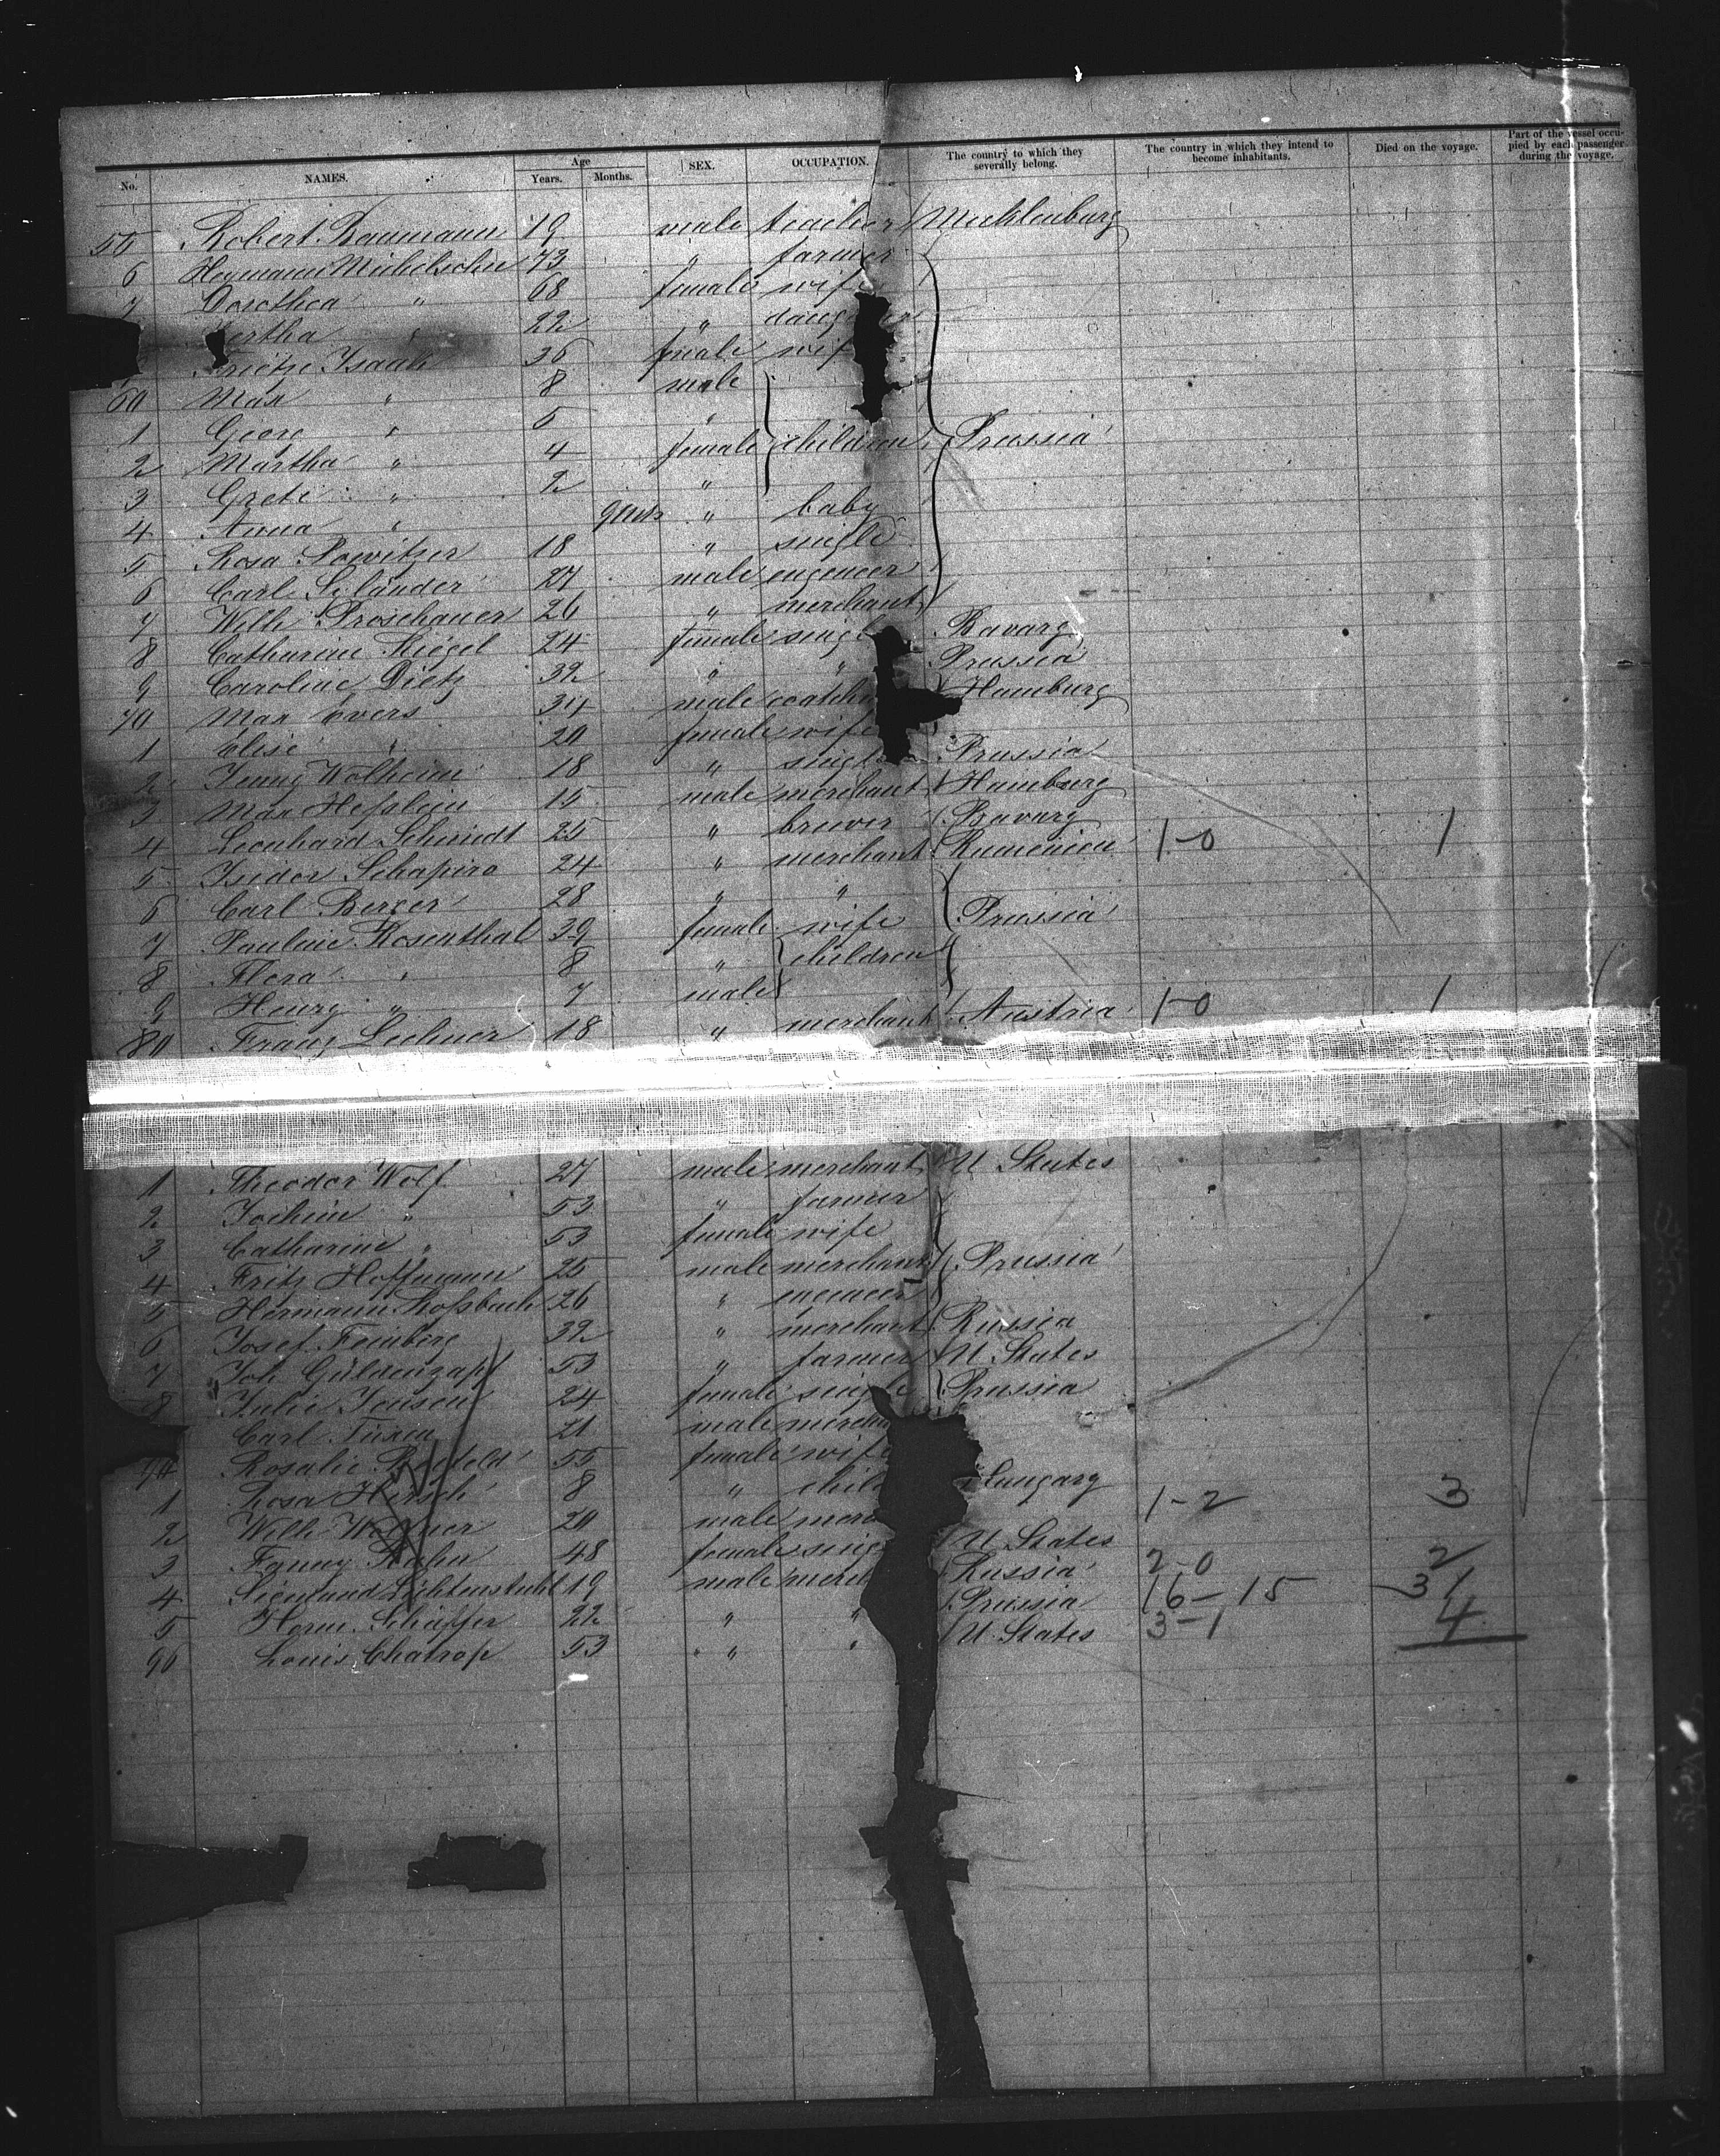 No. NAMES. Age Years. Months. SEX. OCCUPATION. The country to which they severally belong. The country in which they intend to become inhabitants. Died on the voyage. Part of the vessel occupied by each passenger during the voyage.
55 Robert Baumann 19 male teacher Mecklenburg
6 Heymann Michelsohn 73 " farmer
7 Dorothea " 68 female wife
ertha " 22 " daug
Isaak 36 female wif
60 Max " 8 male
1 Georg " 5 "
2 Martha " 4 female children Prussia
3 Grete " 2 "
4 Anna " 9 mts " baby
5 Rosa 18 " single
6 Carl 27 male engeneer
7 Wilh Proschauer 26 " merchant
8 Catharine 24 female singl Bavary
9 Caroline Dietz 32 " " Prussia
70 Max Evers 34 male Hamburg
1 Elise " 20 female wife
2 Jenny Wolheim 18 " single Prussia
3 Max Heßlein 15 male merchant Hamburg
4 Leonhard Schmidt 25 " brewer Bavary
5 Isidor Schapiro 24 " merchant Rumenien 1-0 1
6 Carl Berger 28 " "
7 Pauline Rosenthal 39 female wife Prussia
8 Flora " 8 " children
9 Henry " 7 male
80 Franz Lechner 18 " merchant Austria 1-0 1
1 Theodor Wolf 27 male merchant U States
2 Jochim " 53 " farmer
3 Catharine " 53 female wife
4 Fritz Hoffmann 25 male merchant Prussia
5 Hermann 26 " engeneer
6 Josef Feinberg 32 " merchant Russia
7 Joh Güldenzapf 53 " farmer U States
8 Julie Jensen 24 female single Prussia
Carl 21 male mercha
90 Rosalie 55 female wife
1 Rosa Hirsch 8 " chil Hungary 1-2 3
2 Wilh Wagner 20 male merc
3 Fanny Kahn 48 female sing U States
4 Siegmund Lichtenstuhl 19 male merch Russia 2-0 2
5 Herm. Schäffer 22 " " Prussia 16-15 31
96 Louis Chatrop 53 " " U States 3-1 4